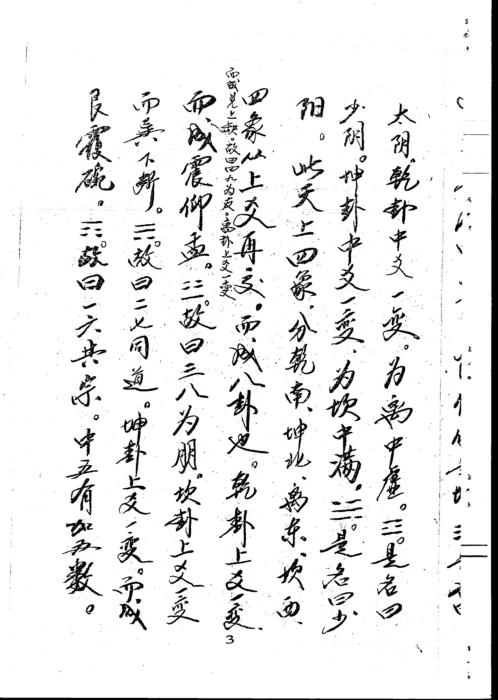 太阴。乾卦中爻一变。为离中虚。☲。是名曰
少阴。坤卦中爻一变、为坎中满。☵。是名曰少
阳。此天上四象、分乾南、坤北、离东、坎西、
四象从上爻再交。而成八卦也。乾卦上爻一变、
而成兑上缺。故曰四九为友。离卦上爻一变
而成震仰盂。☳。故曰三八为朋。坎卦上爻一变
而巽下断。☴。故曰二七同道。坤卦上爻一变。而成
艮覆碗。☶。故曰一六共宗。中五有加五数。
3